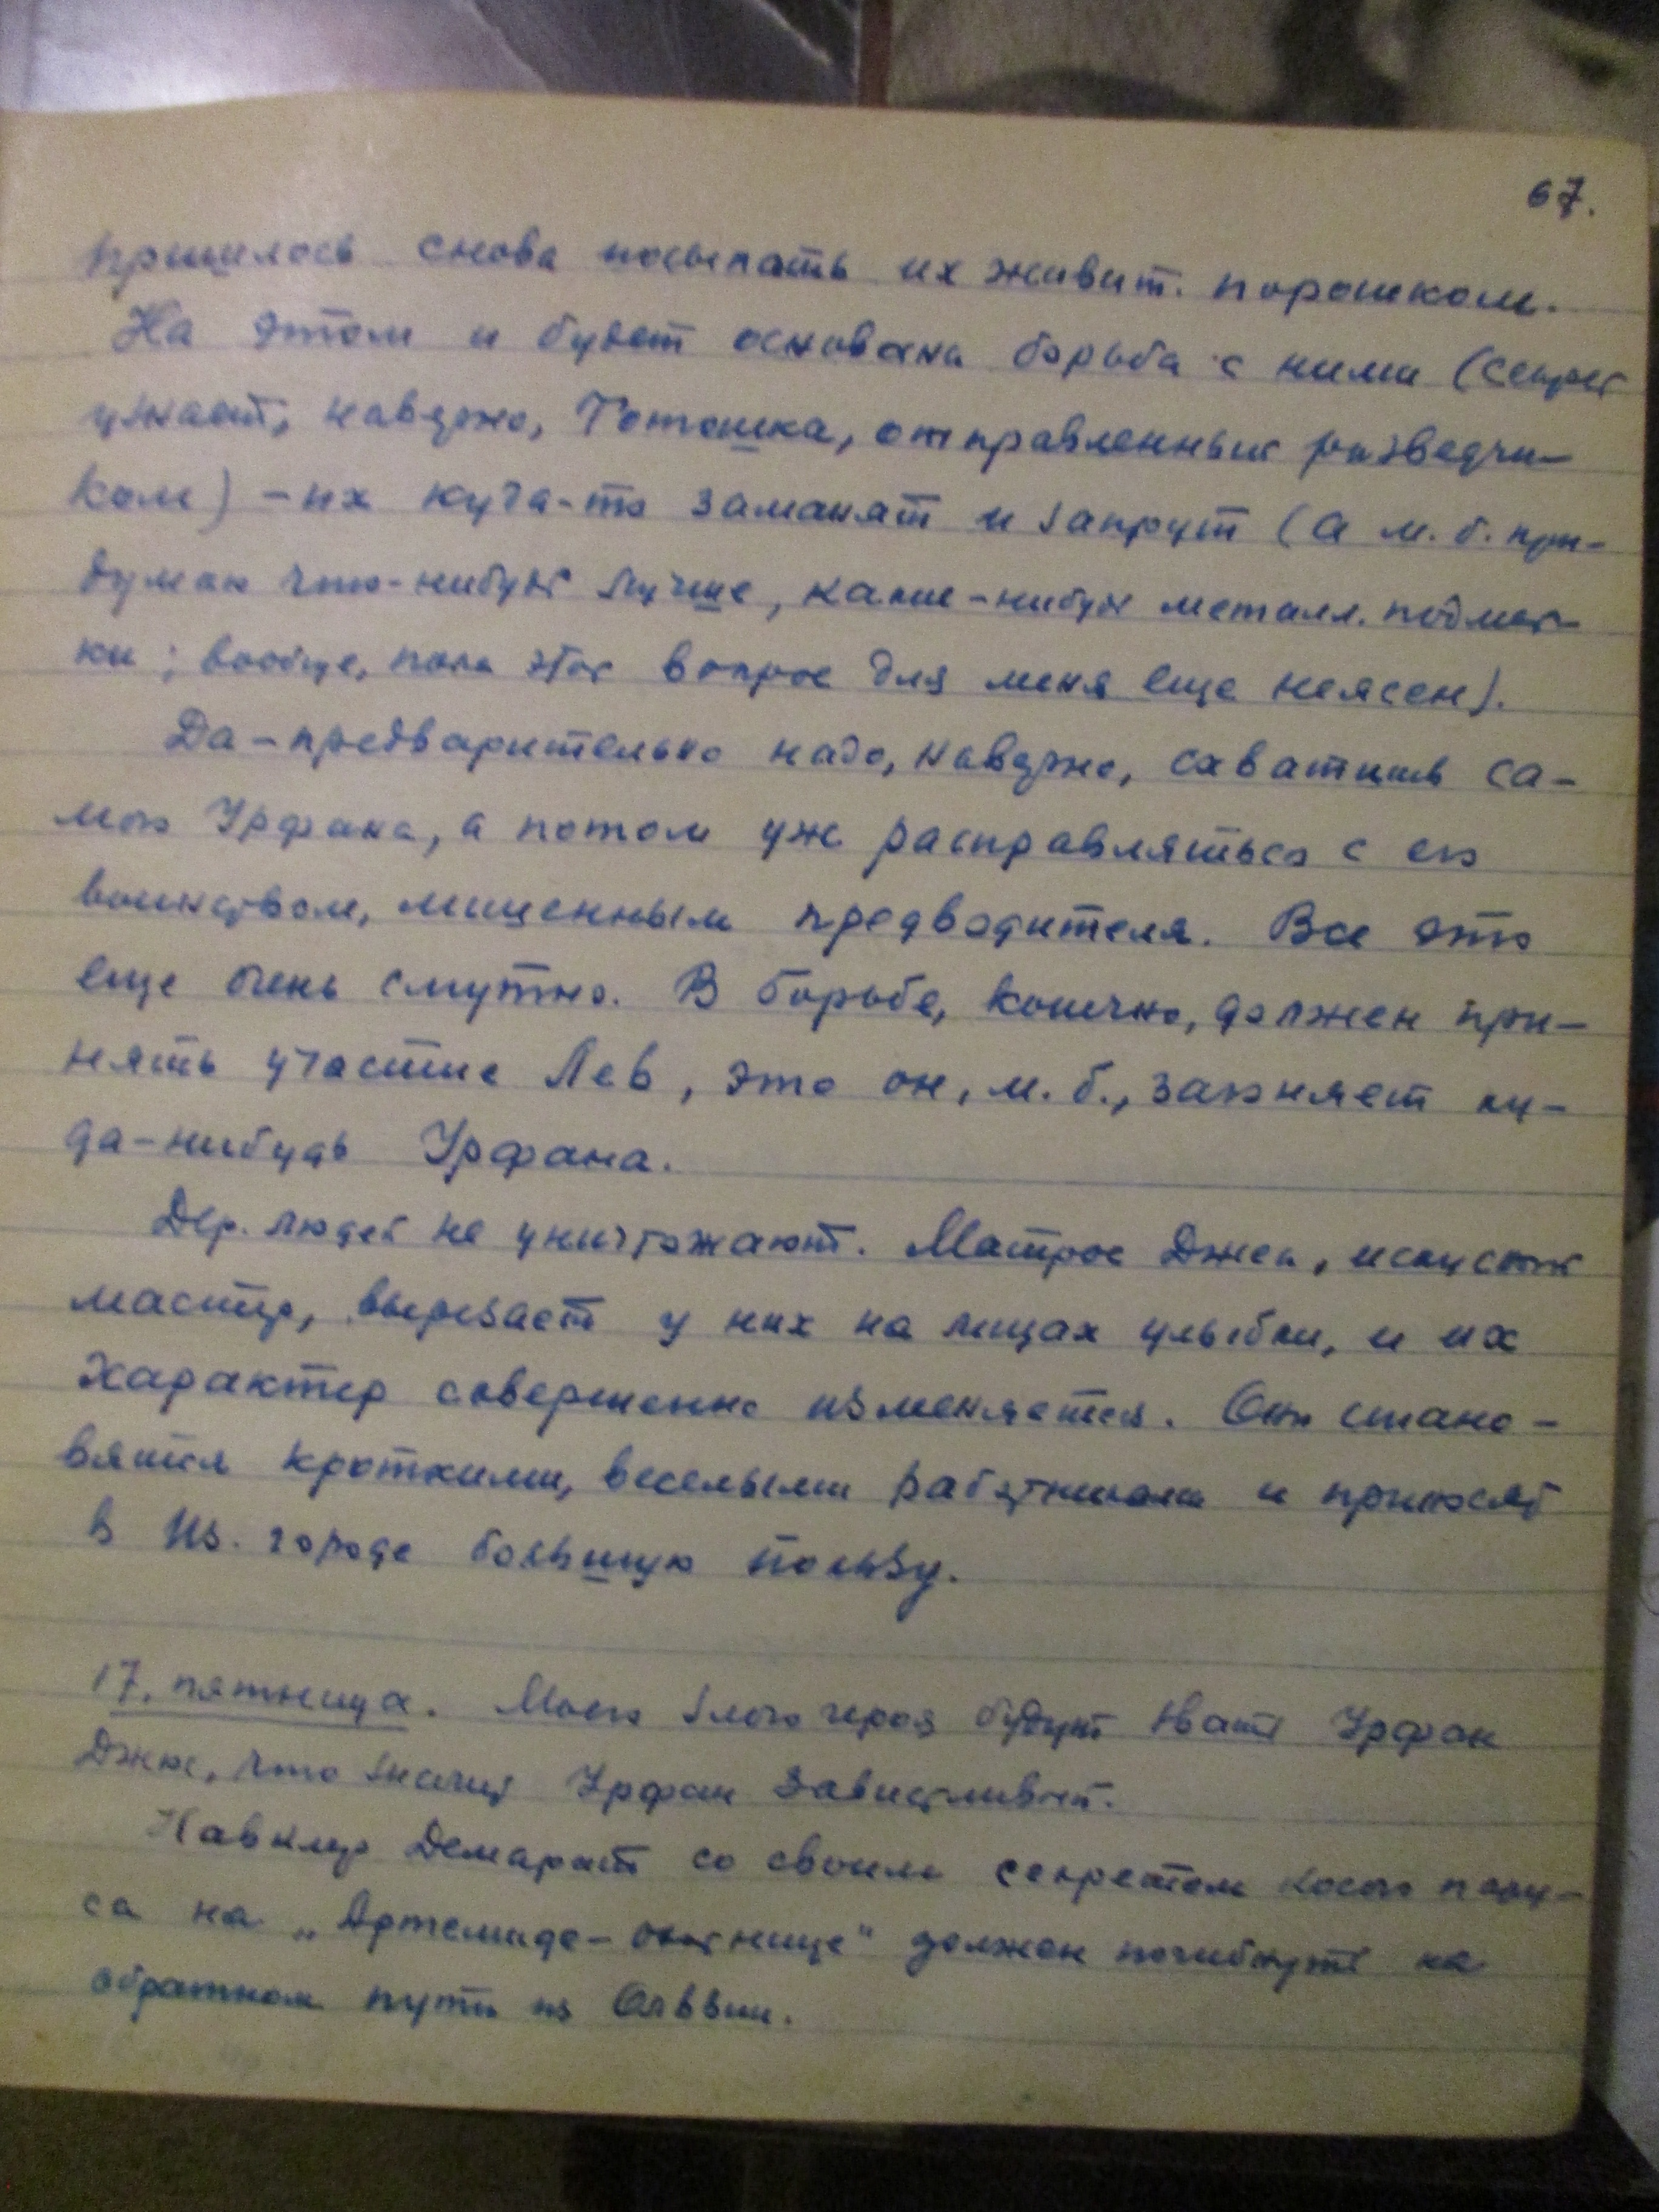 67.
пришлось снова посыпать их живит. порошком.
На этом и будет основана борьба с ними (секрет
узнает, наверно, Тотошка, отправленный разведчи-
ком) – их куда-то заманят и запрут (а м. б. при-
думаю что-нибудь лучше, какие-нибудь металл.
ки; вообще, пока этот вопрос для меня еще неясен).
Да – предварительно надо, наверно, схватить са-
мого Урфана, а потом уж расправляться с его
воинством, лишенным предводителя. Все это
еще очень смутно. В борьбе, конечно, должен при-
нять участие Лев, это он, м. б., загоняет ку-
да-нибудь Урфана.
Дер. людей не уничтожают. Матрос Джек, искусный
мастер, вырезает у них на лицах улыбки, и их
характер совершенно изменяется. Они стано-
вятся кроткими, веселыми работниками и приносят
в Из. городе большую пользу.
17, пятница. Моего злого героя будут звать Урфан
Джюс, что значит Урфан Завистливый.
Навклер Демарат со своим секретом косого пару-
са на „Артемиде-охотнице" должен погибнуть на
обратном пути из Ольвии.